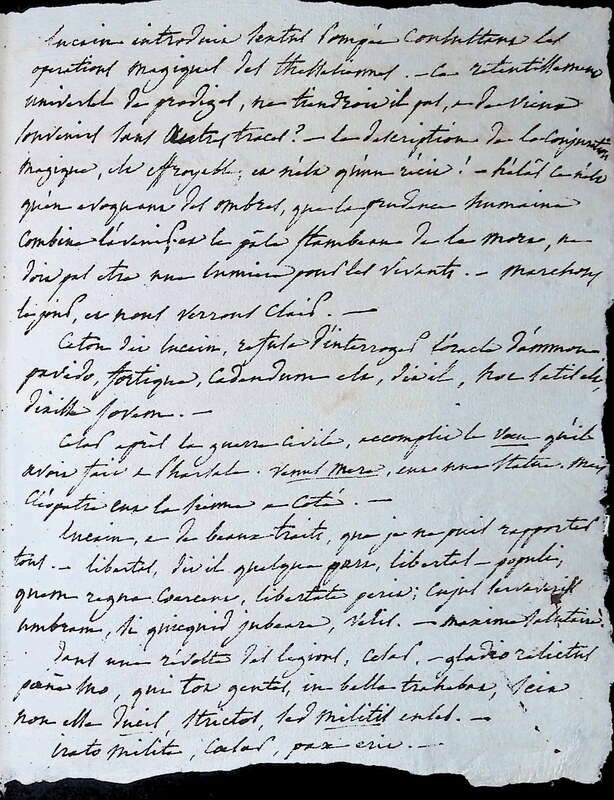 Lucain introduit Sextus Pompée consultant les
operations magiques des thessaliennes. – Ce retentissement
universel de prodiges, ne tiendroit il pas, a de vieux
souvenirs sans autres traces? – la description de la conjuration
magique, est effroyable; ce n'est qu'un récit! – hélas ce n'est
qu'en evoquant des ombres, que la prudence humaine
combine l'avenir, et le pâle flambeau de la mort, ne
doit pas etre une lumiere pour les vivants. – marchons
et nous verrons clair. –
Caton dit Lucain, refuse d'interroger l'oracle d'ammon
pavido, fortique, cadendum est, dit il, hoc satis est,
dixisse Jovem. –
Cesar après la guerre civile, accomplit le vœu qu'il
avoit fait a Pharsale. Venus mere, eut une statue. mais
Cléopatre eut la sienne a coté. –
Lucain, a de beaux traits, que je ne puis rapporter
tous. – libertas, dit il quelque part, libertas – populi,
quem regna coercent, libertate perit; cujus servaveris
umbram, si quicquid jubeare, velis. – maxime salutaire.
dans une révolte des legions, Cesar. – gladio relictus
pœne suo, qui tot gentes, in bella trahebat, scit
non esse ducis strictos, sed militis enses. –
irato milite, Cæsar, pax erit. –